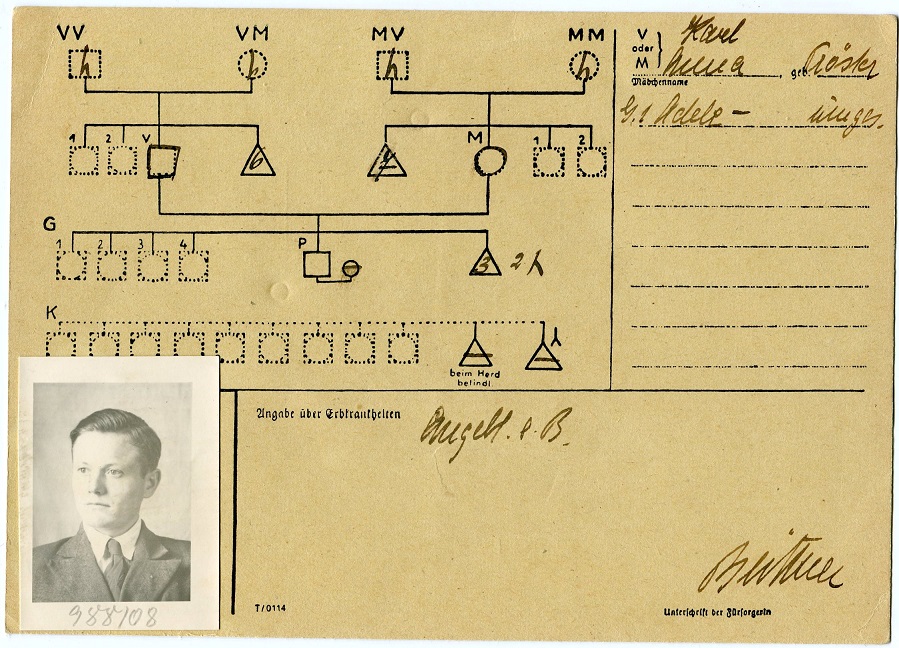 VV VM MV MM
h h h h
1 2 V 6 M 1 2
G
1 2 3 4 P 3 2
K
beim Herd
befindl
V
oder
M
Karl
Anna, geb. Röster
Mädchenname
G. 1 Adele –
Angabe über Erbkrankheiten
Angebl. o. B.
Unterschrift der Fürsorgerin
T/0114
988/08